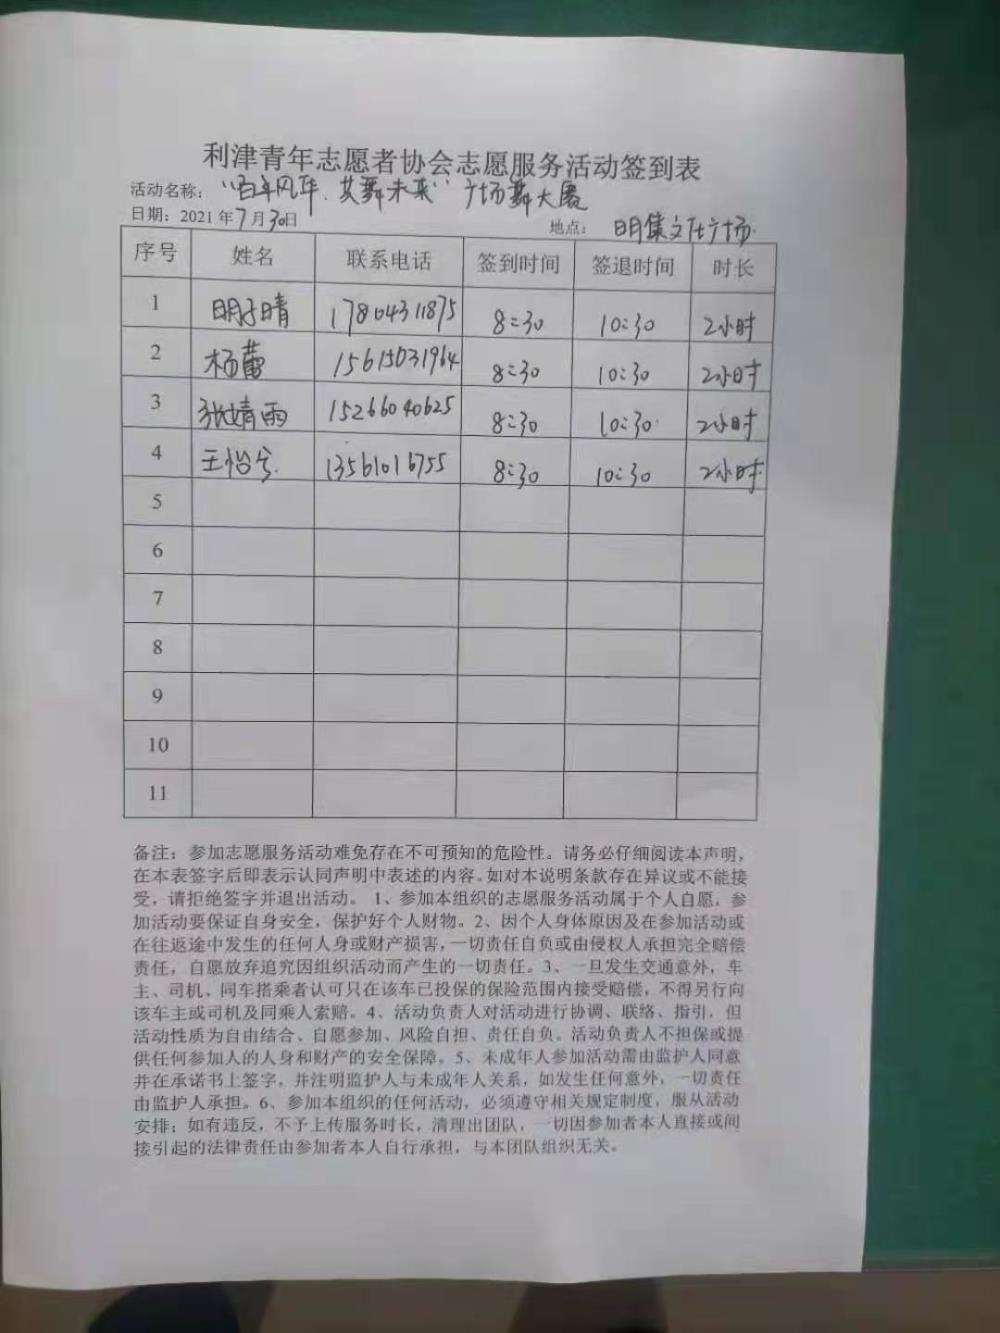 利津青年志愿者协会志愿服务活动签到表
活动名称：“百年风华，艾舞未来”广场舞大赛
日期：2021年7月30日 地点：明集文化广场
序号 姓名 联系电话 签到时间 签退时间 时长
1 明子晴 17804311875 8:30 10:30 2小时
2 杨蕾 15615031964 8:30 10:30 2小时
3 张婧雨 15266040625 8:30 10:30 2小时
4 王怡兮 13561016755 8:30 10:30 2小时
5
6
7
8
9
10
11
备注：参加志愿服务活动难免存在不可预知的危险性。请务必仔细阅读本声明，
在本表签字后即表示认同声明中表述的内容。如对本说明条款存在异议或不能接
受，请拒绝签字并退出活动。 1、参加本组织的志愿服务活动属于个人自愿，参
加活动要保证自身安全，保护好个人财物。2、因个人身体原因及在参加活动或
在往返途中发生的任何人身或财产损害，一切责任自负或由侵权人承担完全赔偿
责任，自愿放弃追究因组织活动而产生的一切责任。3、一旦发生交通意外，车
主、司机、同车搭乘者认可只在该车已投保的保险范围内接受赔偿，不得另行向
该车主或司机及同乘人索赔。4、活动负责人对活动进行协调、联络、指引，但
活动性质为自由结合、自愿参加、风险自担、责任自负。活动负责人不担保或提
供任何参加人的人身和财产的安全保障。5、未成年人参加活动需由监护人同意
并在承诺书上签字，并注明监护人与未成年人关系，如发生任何意外，一切责任
由监护人承担。6、参加本组织的任何活动，必须遵守相关规定制度，服从活动
安排；如有违反，不予上传服务时长，清理出团队，一切因参加者本人直接或间
接引起的法律责任由参加者本人自行承担，与本团队组织无关。